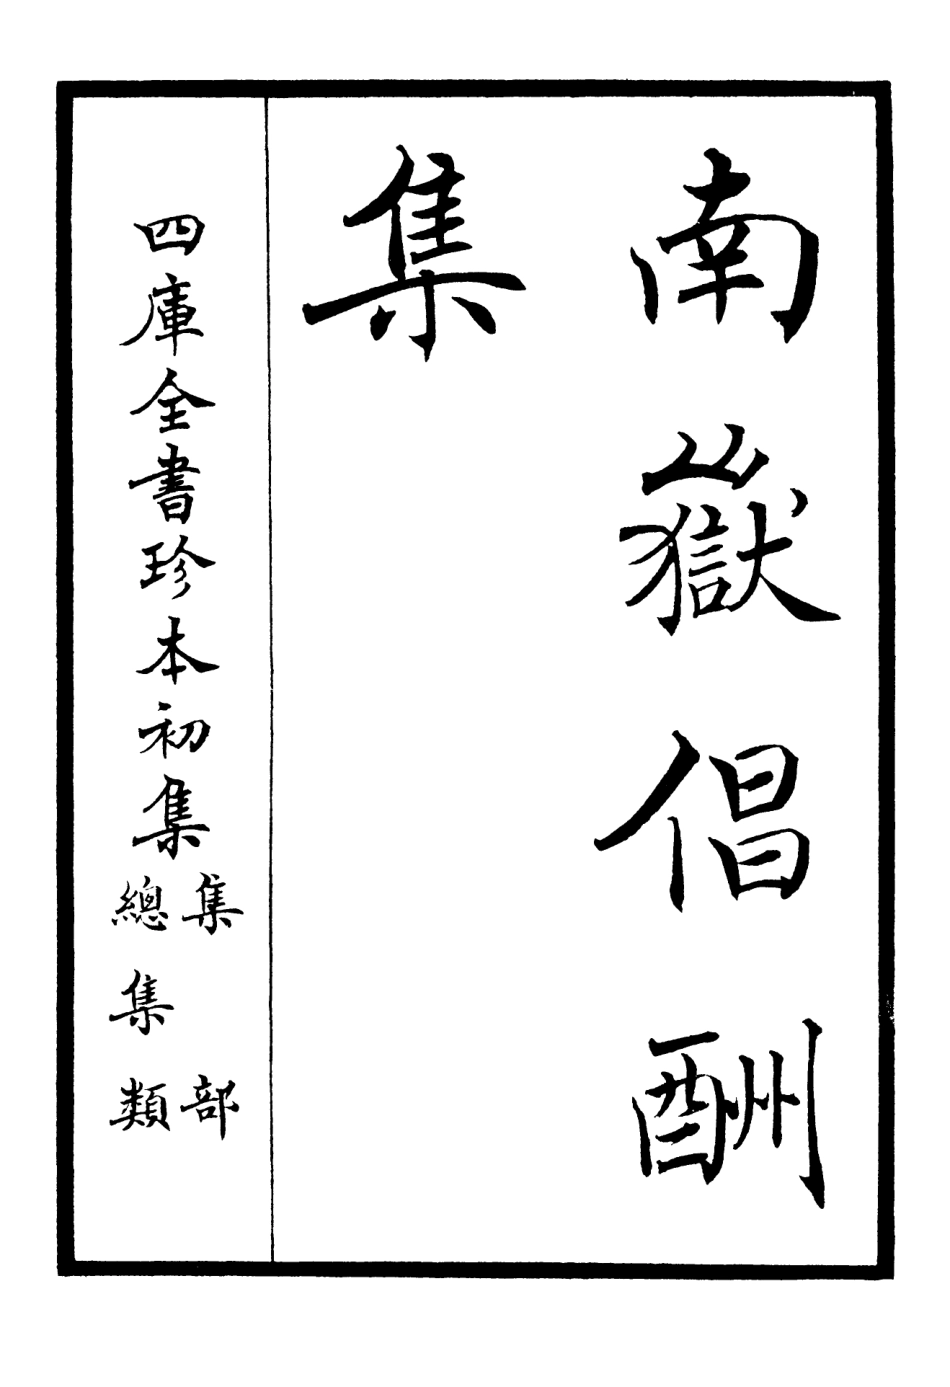 南嶽倡酬
集
四庫全書珍本初集
集部
總集類